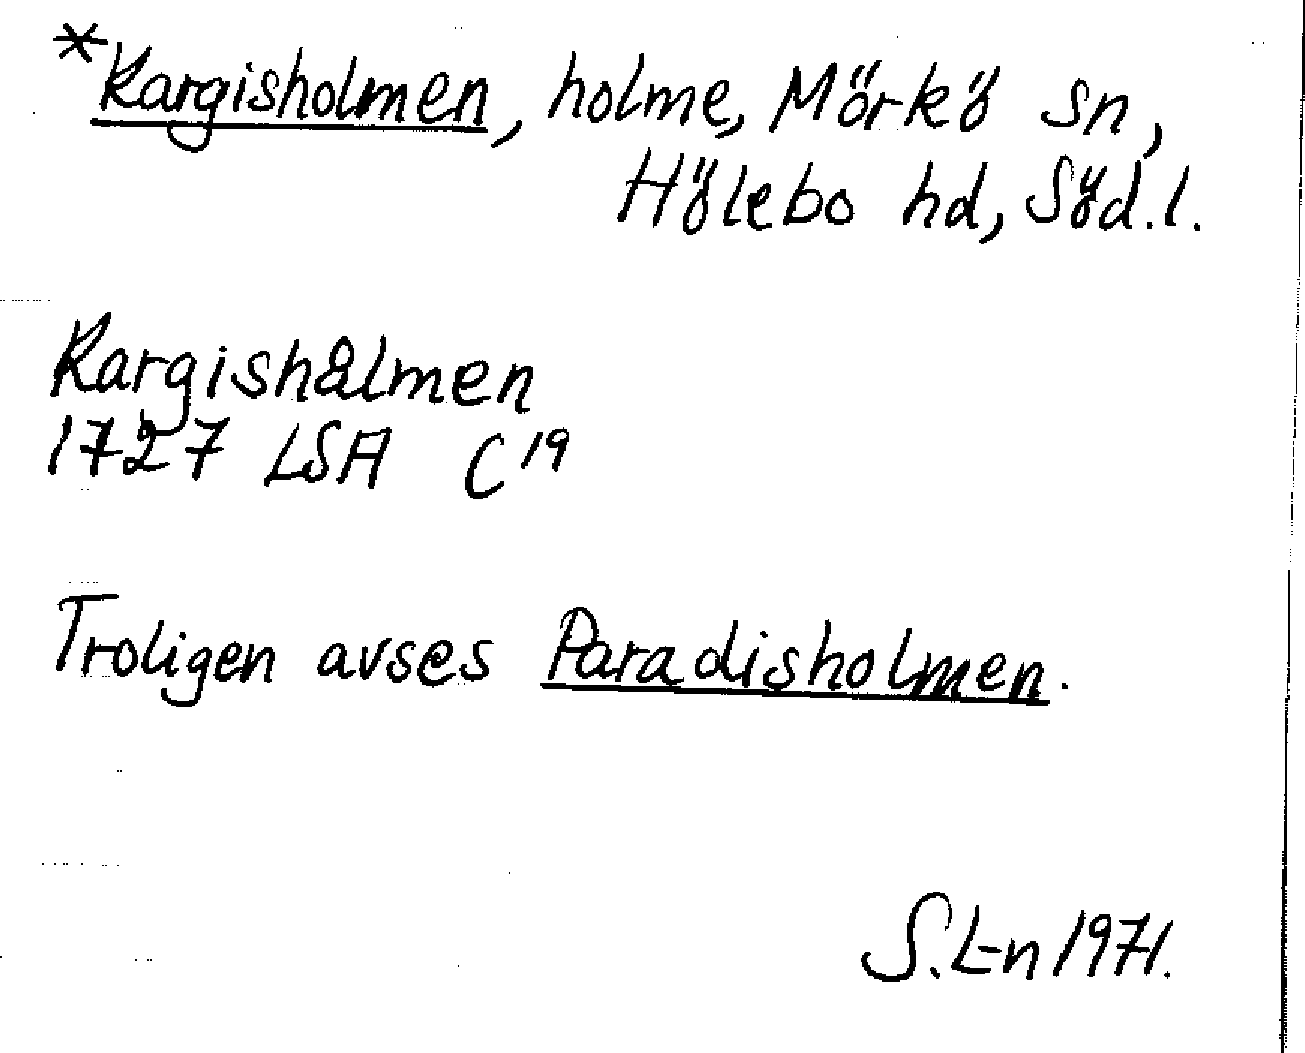 *Kargisholmen, holme, Mörkö sn,
Hölebo hd, Söd.l.
Kargishålmen
1727 LSA C 19
Troligen avses Paradisholmen.
S.L-n 1971.